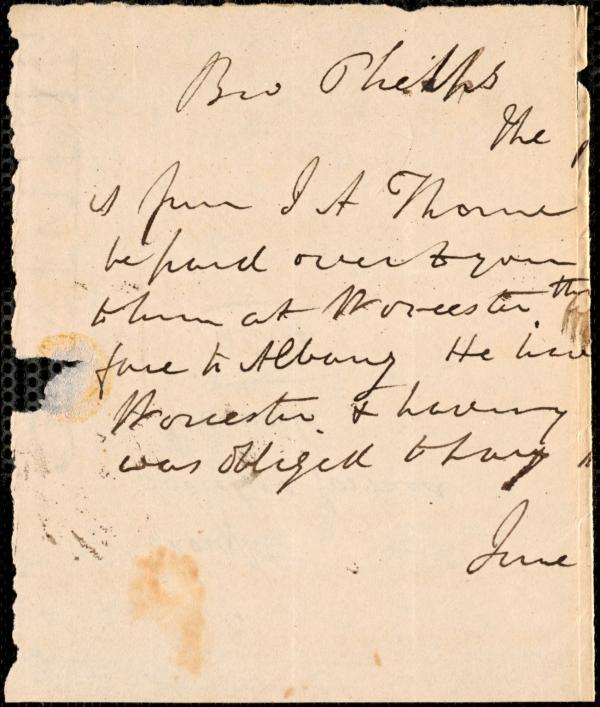 Bro Phelps
The
is from J A Thome
be paid over to you
to him at Worcester
fare to Albany He have
Worcester & having
was obliged to
June